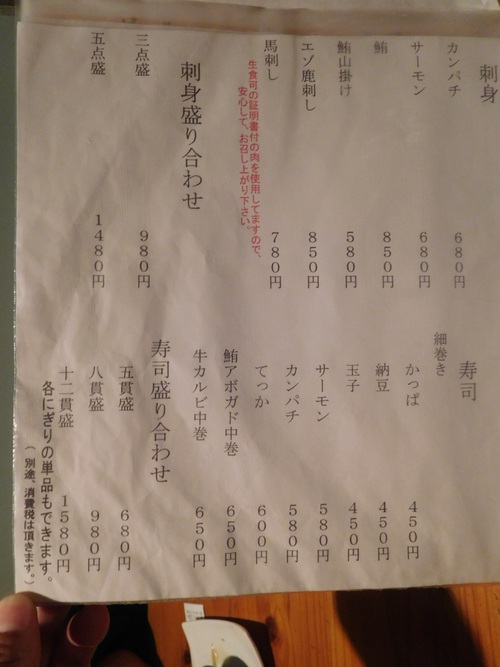 刺身
カンパチ 680円
サーモン 680円
鮪 850円
鮪山掛け 580円
エゾ鹿刺し 850円
馬刺し 780円
生食可の証明書付の肉を使用してますので、
安心して、お召し上がり下さい。
刺身盛り合わせ
三点盛 980円
五点盛 1480円
寿司
細巻き
かっぱ 450円
納豆 450円
玉子 450円
サーモン 580円
カンパチ 580円
てっか 600円
鮪アボガド中巻 650円
牛カルビ中巻 650円
寿司盛り合わせ
五貫盛 680円
八貫盛 980円
十二貫盛 1580円
各にぎりの単品もできます。
(別途、消費税は頂きます。)